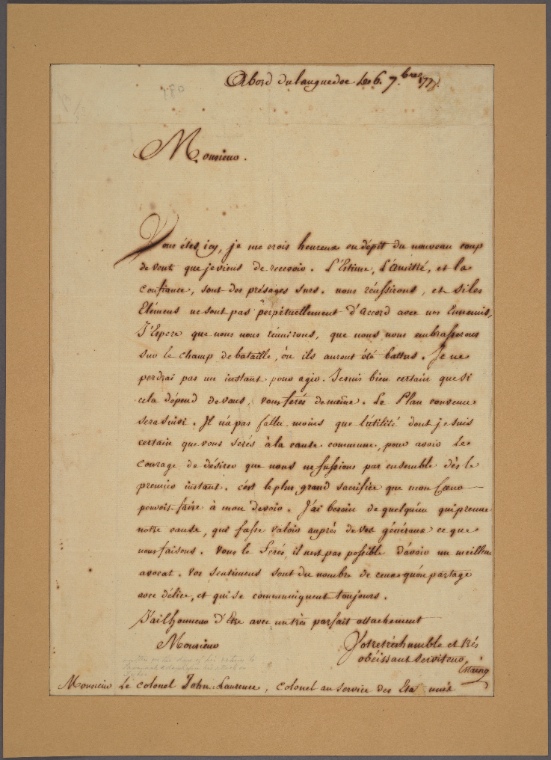 Abord du languedoc le 6. 7.bre 177
Monsieur.
Vous étes icy, je me crois heureux en dépit du nouveau coup
de vent que je viens de recevoir. L'Estime, L'amitié, et la
confiance, sont des présages surs. nous réussirons, et si les
Elémens ne sont pas perpétuellement d'accord avec nos Ennemis,
J'Espere que nous nous réunirons, que nous nous embrasserons
sur le champ de bataille, ou ils auront été battus. Je ne
perdrai pas un instant pour agir. Je suis bien certain que si
cela dépend de vous, vous ferés de même. Le Plan convenu
sera suivi. Il n'a pas fallu moins que l'utilité dont je suis
certain que vous serés à la cause commune, pour avoir le
courage de désirer que nous ne fussions pas ensemble dès le
premier instant. c'est le plus grand sacrifice que mon Coeur
pouvoit faire à mon devoir. J'ai besoin de quelqu'un qui prenne
notre cause, qui fasse valoir auprès de vos généraux ce que
nous faisons. Vous le Ferés, il n'est pas possible d'avoir un meilleur
avocat. vos sentimens sont du nombre de ceux qu'on partage
avec délice, et qui se communiquent toujours.
J'ai l'honneur d'Etre avec un très parfait attachement
Monsieur
Votre très humble et très
obéissant serviteur
Estaing
Monsieur Le colonel John Laurence, colonel au service des Etats unis